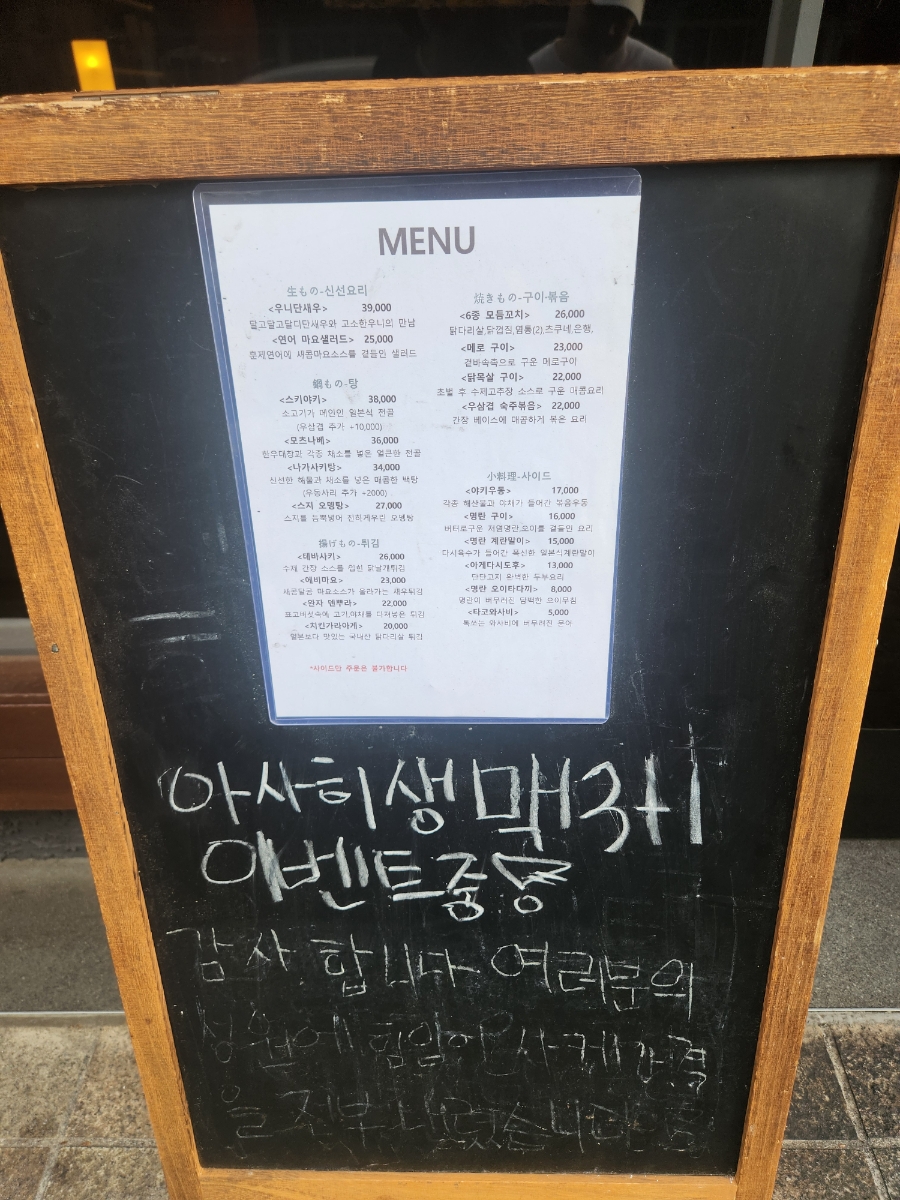 MENU
生もの-신선요리
<우니단새우> 39,000
달고달고달디단새우와 고소한우니의 만남
<연어 마요샐러드> 25,000
훈제연어에 새콤마요소스를 곁들인 샐러드
鍋もの-탕
<스키야키> 38,000
소고기가 메인인 일본식 전골
(우삼겹 추가 +10,000)
<모츠나베> 36,000
한우대창과 각종 채소를 넣은 얼큰한 전골
<나가사키탕> 34,000
신선한 해물과 채소를 넣은 매콤한 백탕
(우동사리 추가 +2000)
<스지 오뎅탕> 27,000
스지를 듬뿍넣어 진하게우린 오뎅탕
揚げもの-튀김
<테바사키> 26,000
수제 간장 소스를 입힌 닭날개튀김
<에비마요> 23,000
새콤달콤 마요소스가 올라가는 새우튀김
<완자 덴뿌라> 22,000
표고버섯속에 고기,야채를 다져넣은 튀김
<치킨가라아게> 20,000
일본보다 맛있는 국내산 닭다리살 튀김
*사이드만 주문은 불가합니다
焼きもの-구이·볶음
<6종 모듬꼬치> 26,000
닭다리살,닭껍질,염통(2),츠쿠네,은행,
<메로 구이> 23,000
겉바속촉으로 구운 메로구이
<닭목살 구이> 22,000
초벌 후 수제고추장 소스로 구운 매콤요리
<우삼겹 숙주볶음> 22,000
간장 베이스에 매콤하게 볶은 요리
小料理-사이드
<야키우동> 17,000
각종 해산물과 야채가 들어간 볶음우동
<명란 구이> 16,000
버터로구운 저염명란,오이를 곁들인 요리
<명란 계란말이> 15,000
다시육수가 들어간 폭신한 일본식계란말이
<아게다시도후> 13,000
단단고지 완벽한 두부요리
<명란 오이타다끼> 8,000
명란이 버무려진 담백한 오이무침
<타코와사비> 5,000
톡쏘는 와사비에 버무려진 문어
아사히생맥3+1
이벤트중
감사합니다 여러분의
성원에 힘입어 사케가격
을 전부내렸습니다